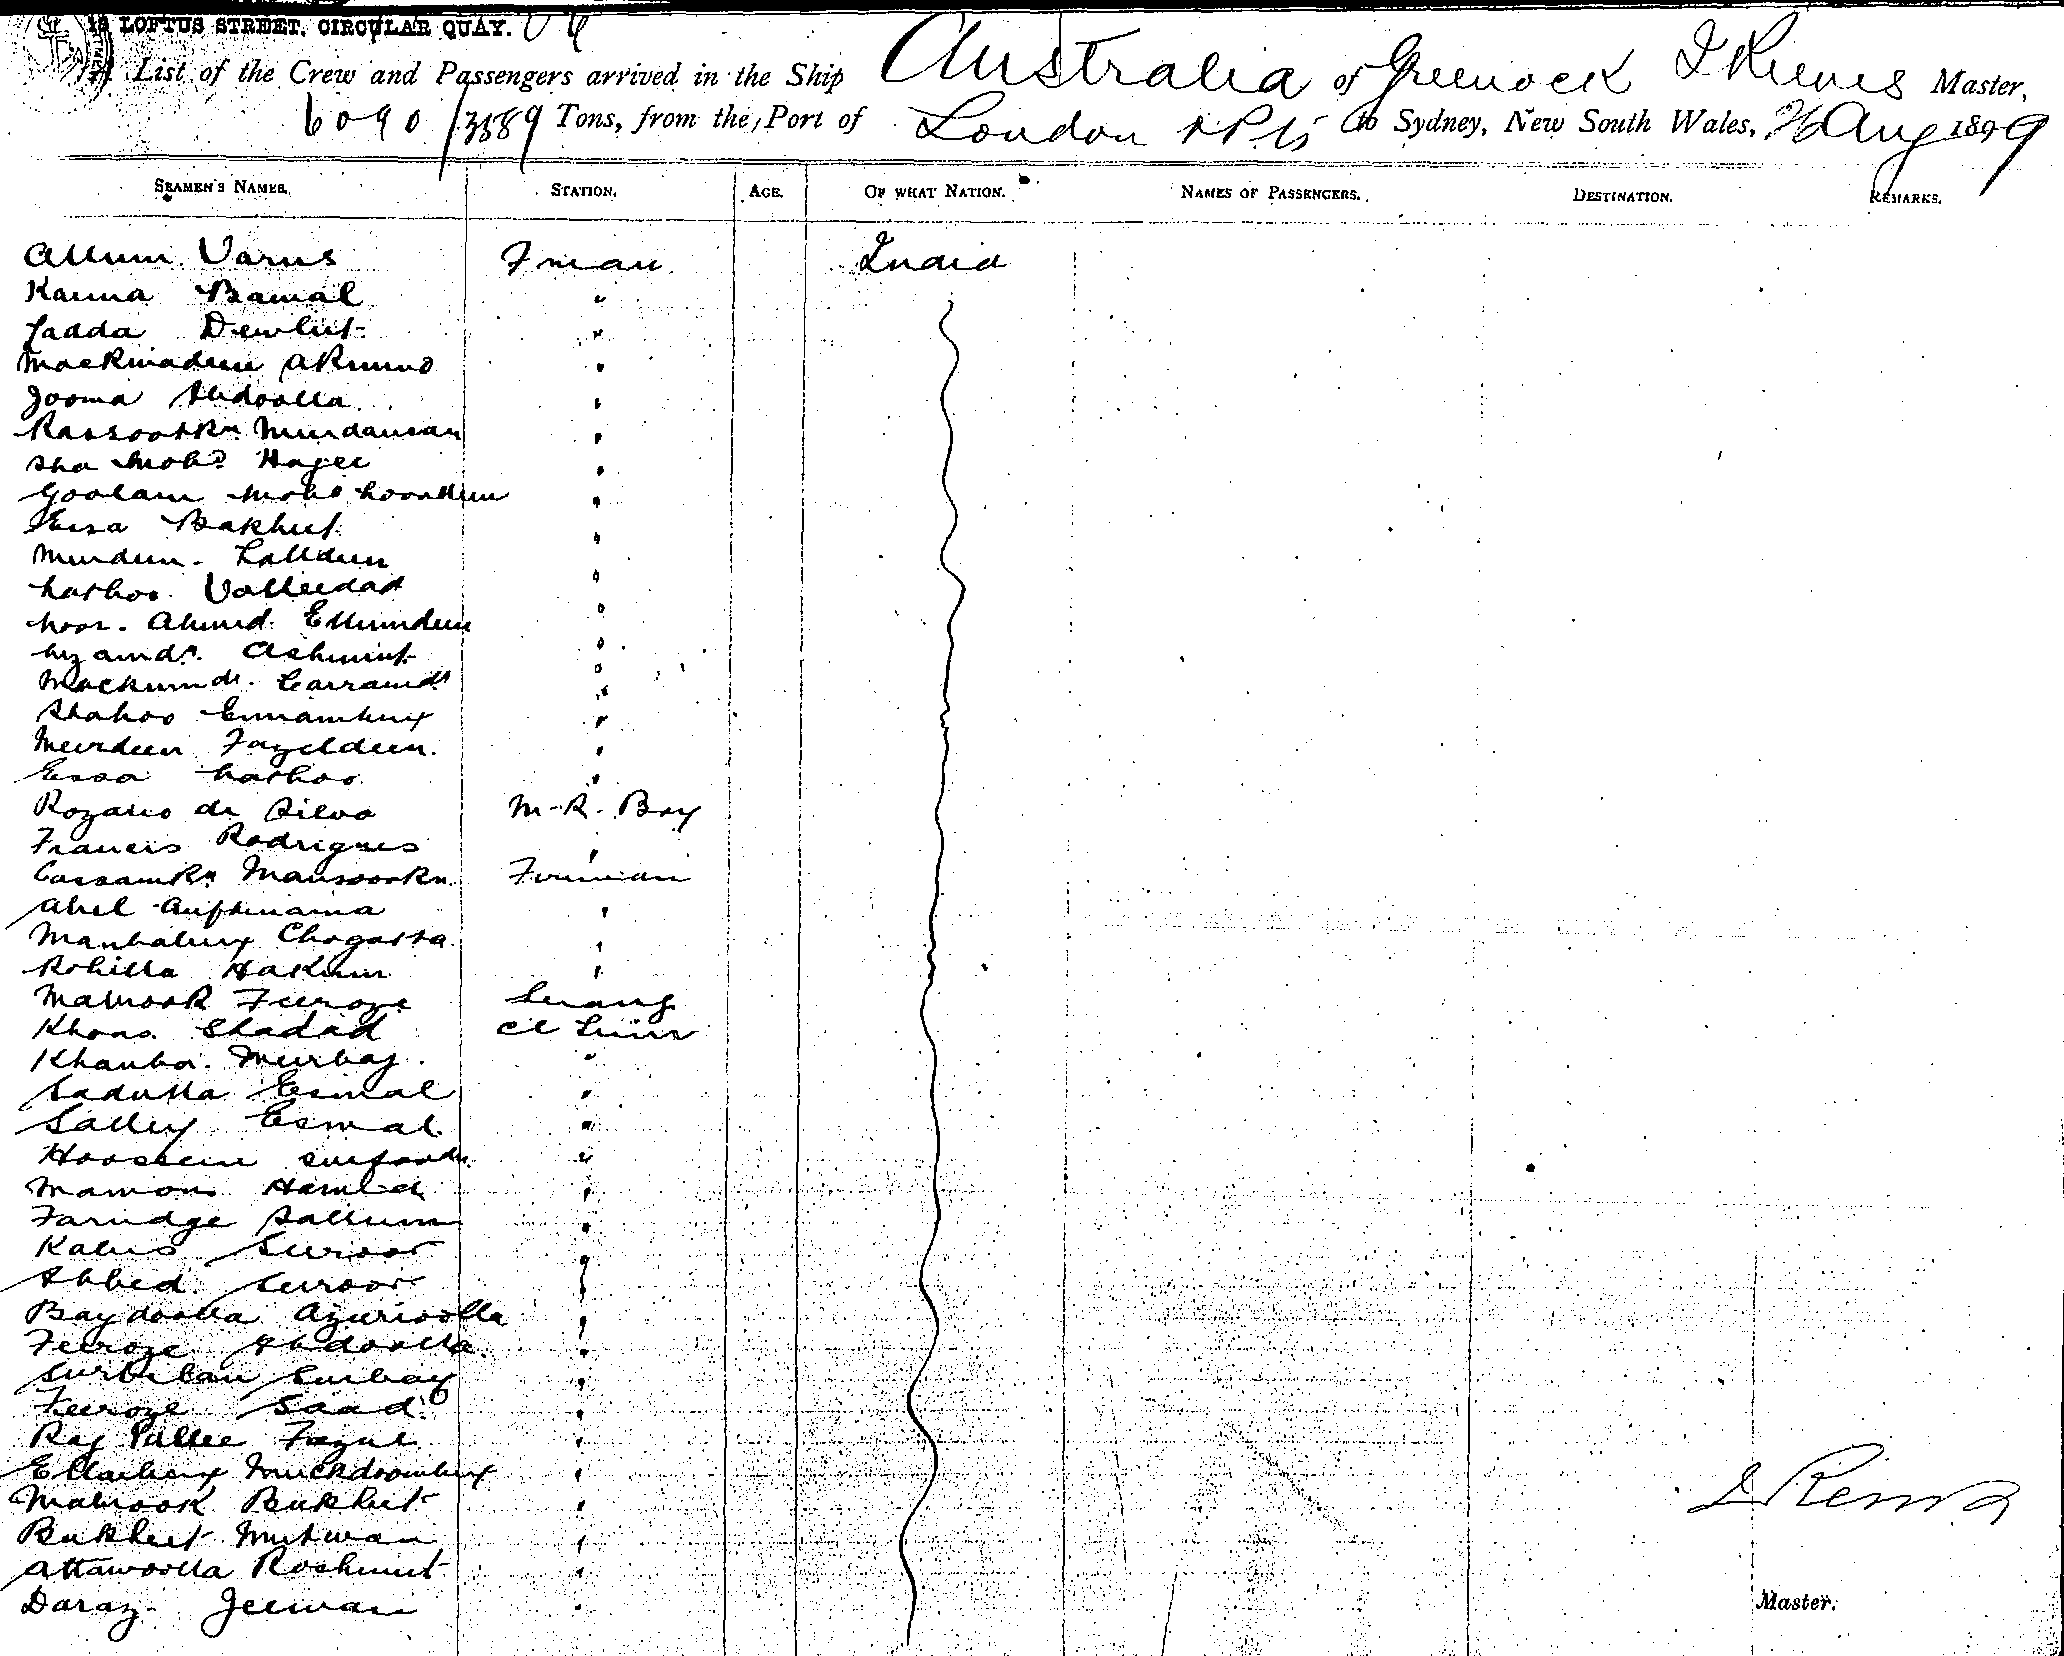 18 LOFTUS STREET. CIRCULAR QUAY.
List of the Crew and Passengers arrived in the Ship Australia of Greenock Master,
6090/3389 Tons, from the Port of London to Sydney, New South Wales, 26 Aug 1899
SEAMEN'S NAMES. STATION. AGE. OF WHAT NATION. NAMES OF PASSENGERS. DESTINATION. REMARKS.
Allum Varus Fman India
Kanna Bamal "
Jadda Dewlut "
Mackmadeen Akmud "
Jooma Abdoolla "
Rassootkn "
Sha Mobd Hajee "
Goolam Mohd Noordeen "
Eusa Bakhut "
Meerdeen Lalldeen "
Nathoo Valleedad "
Noor Ahmd. Ellumdeen "
Nyamdn. Ashmut "
Carramdn "
Shaboo Emambux "
Meerdeen Fazeldeen "
Essa Nathoo "
Rozario de Silva M. R. Boy
Francis Rodrigues "
Cassamkn Mansoorkn Fireman
Abel "
Manbalux Chogatta "
Rohilla Hakim "
Mabrook Feeroze Serang
Khona Shadad
Khanba Meerbaj "
Sadulla Esmal "
Salley Esmal "
Hoossein "
Mamon Hamed "
Farudge Sallum "
Kabus Suroor "
Abbed Suroor "
Baydoolla Azurioolla "
Feeroze Abdoolla "
Surbulan Surbay "
Feeroze Saad "
Raj Vallee Fazul "
Ellaibux Muckdoombux "
Mabrook Bukhut "
Bukhut Mutwan "
Attawoolla Rochmut "
Daraz Jeewan "
Master.